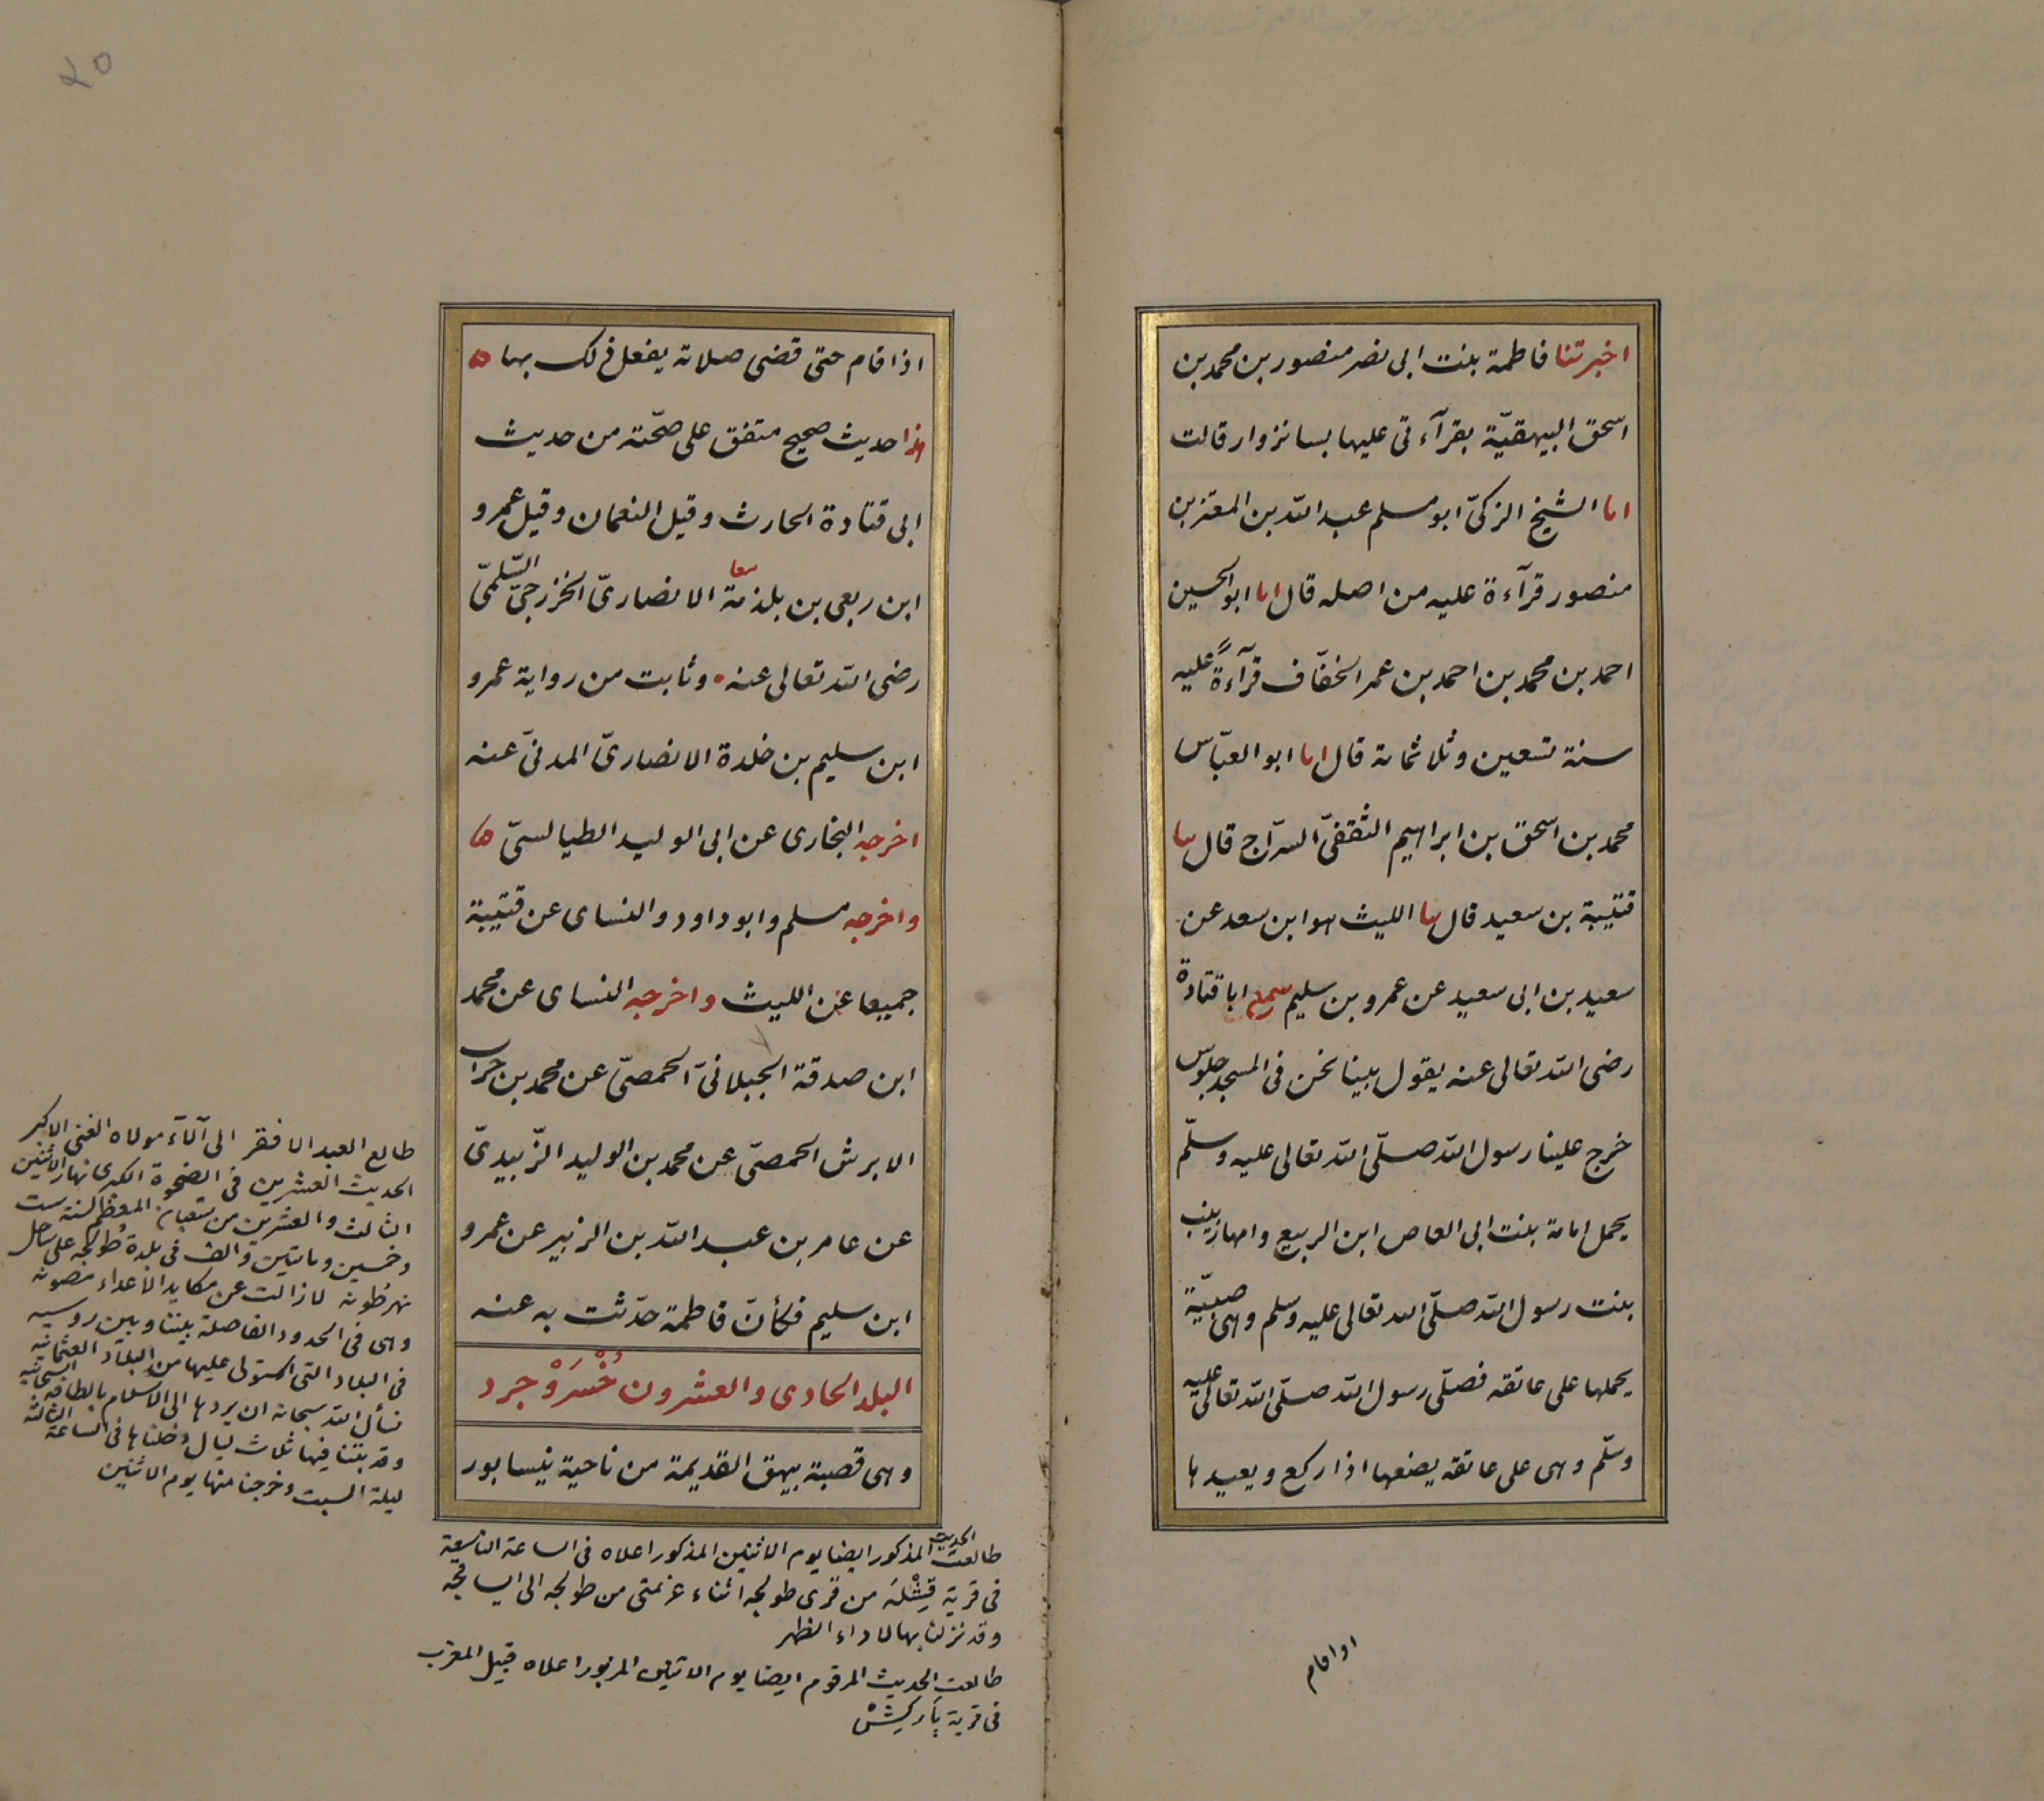 اخبرتنا فاطمة بنت ابى نصر منصور بن محمد بن
اسحق البيهقيّة بقرآءتى عليها بسانزوار قالت
انا الشيخ الزكىّ ابو مسلم عبد الله بن المعتز بن
منصور قرآءة عليه من اصله قال انا ابو الحسين
احمد بن محمد بن احمد بن عمر الخفّاف قرآءةً عليه
سنة تسعين وثلاثمائة قال انا ابو العبّاس
محمد بن اسحق بن ابراهيم الثقفىّ السرّاج قال ثنا
قتيبة بن سعيد قال ثنا الليث هو ابن سعد عن
سعيد بن ابى سعيد عن عمرو بن سليم سمع ابا قتادة
رضى الله تعالى عنه يقول بينا نحن فى المسجد جلوس
خرج علينا رسول الله صلّى الله تعالى عليه وسلّم
يحمل امامة بنت ابى العاص ابن الربيع وامها زينب
بنت رسول الله صلّى الله تعالى عليه وسلم وهى صبيّة
يحملها على عاتقه فصلّى رسول الله صلّى الله تعالى عليه
وسلّم وهى على عاتقه يضعها اذا ركع ويعيدها
اذا قام
٢٥
اذا قام حتى قضى صلاته يفعل ذلك بها ه
هذا حديث صحيح متفق على صحّته من حديث
ابى قتادة الحارث وقيل النعمان وقيل عمرو
ابن ربعى بن بلذمة معا الانصارىّ الخزرجىّ السّلمىّ
رضى الله تعالى عنه • وثابت من رواية عمرو
ابن سليم بن خلدة الانصارىّ المدنىّ عنه
اخرجه البخارى عن ابى الوليد الطيالسىّ ه
واخرجه مسلم وابو داود والنساى عن قتيبة
جميعا عن الليث واخرجه النساى عن محمد
ابن صدقة الجبلانىّ الحمصىّ عن محمد بن حراب
الابرش الحمصىّ عن محمد بن الوليد الزّبيدىّ
عن عامر بن عبد الله بن الزبير عن عمرو
ابن سليم فكأنّ فاطمة حدّثت به عنه
البلد الحادى والعشرون خُسْرَوْجرد
وهى قصبة بيهق القديمة من ناحية نيسابور
طالع العبد الافقر الى آلآء مولاه الغنى الاكبر
الحديث العشرين فى الضحوة الكبرى نهار الاثنين
الثالث والعشرين من شعبان المعظم لسنة ست
وخمسين ومائتين والف فى بلدة طولجه على ساحل
نهر طونه لا زالت عن مكايد الاعداء مصونه
وهى فى الحدود الفاصلة بيننا وبين روسيه
فى البلاد التى استولى عليها من البلاد العثمانيه
نسأل الله سبحانه ان يردها الى الاسلام بالطافه السبحانيه
وقد بتنا فيها ثلاث ليال دخلناها فى الساعة الثالثة
ليلة السبت وخرجنا منها يوم الاثنين
طالعت الحديث المذكور ايضا يوم الاثنين المذكور اعلاه فى الساعة التاسعة
فى قرية قِشْلَه من قرى طولجه اثناء عزيمتى من طولجه الى ايساقجه
وقد نزلنا بها لاداء الظهر
طالعت الحديث المرقوم ايضا يوم الاثنين المزبور اعلاه قبيل المغرب
فى قرية پاركيشْ